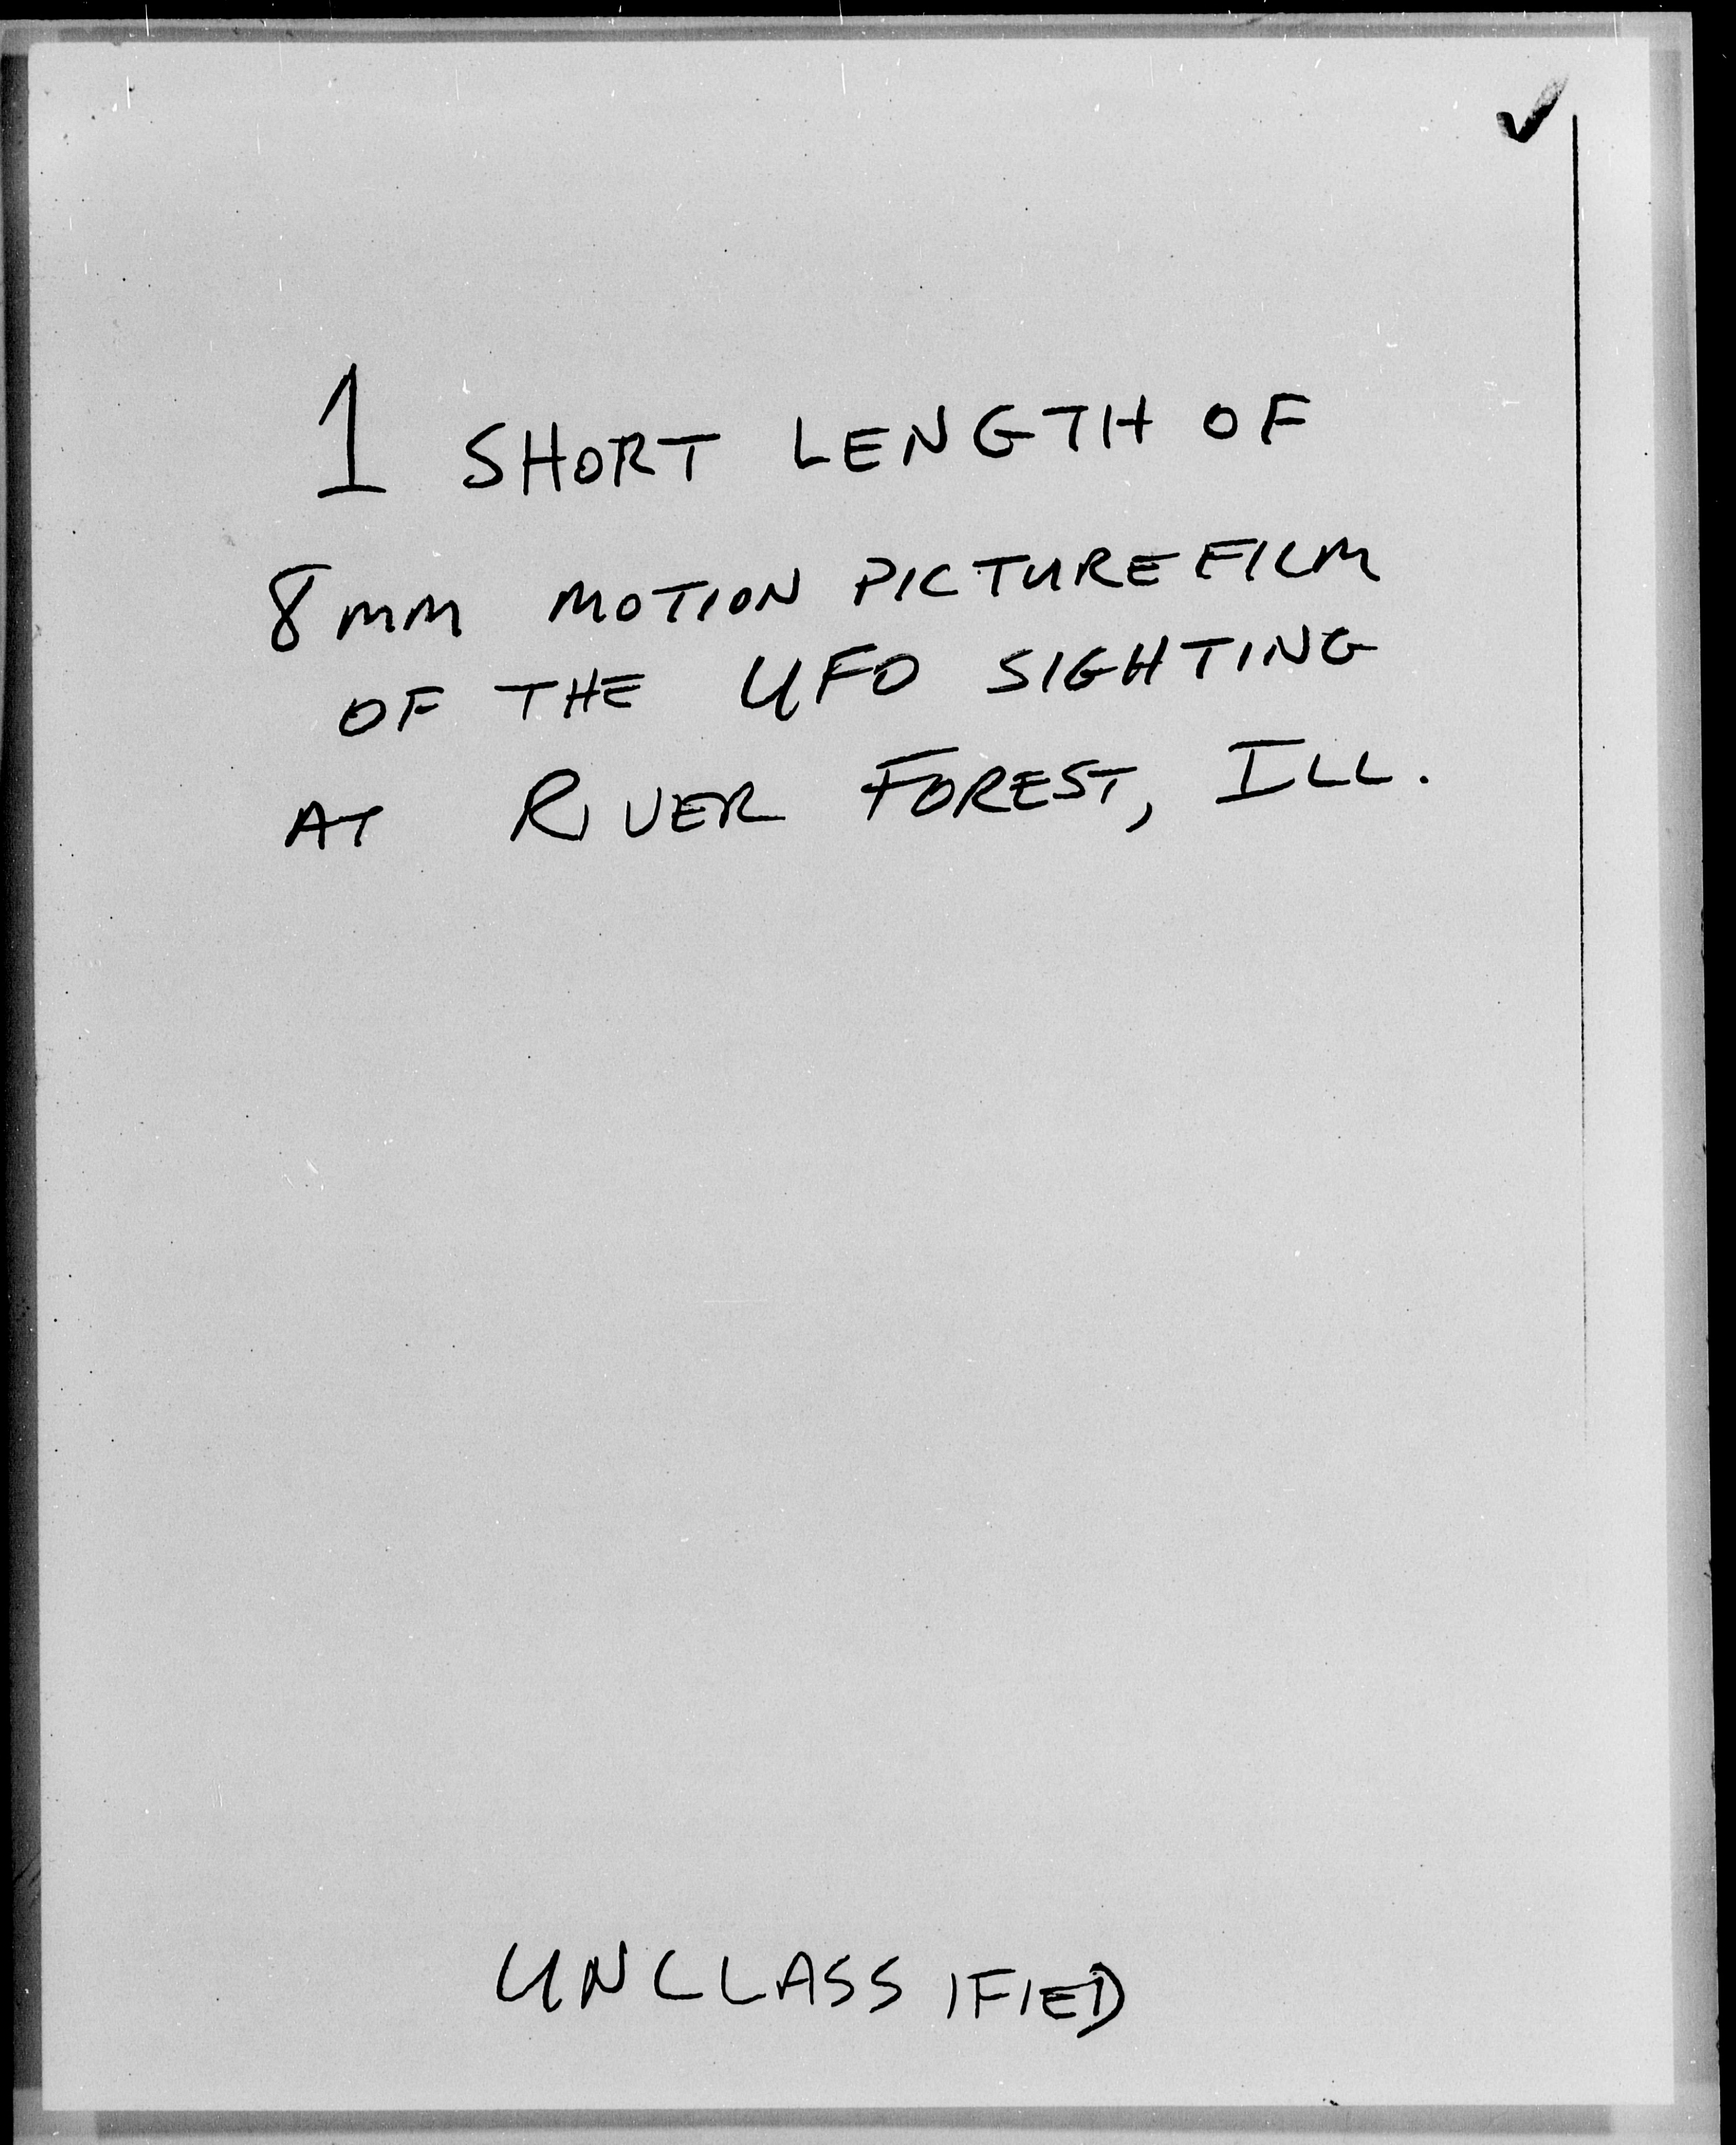 1 SHORT LENGTH OF
8mm MOTION PICTURE FILM
OF THE UFO SIGHTING
AT RIVER FOREST, ILL.
UNCLASSIFIED